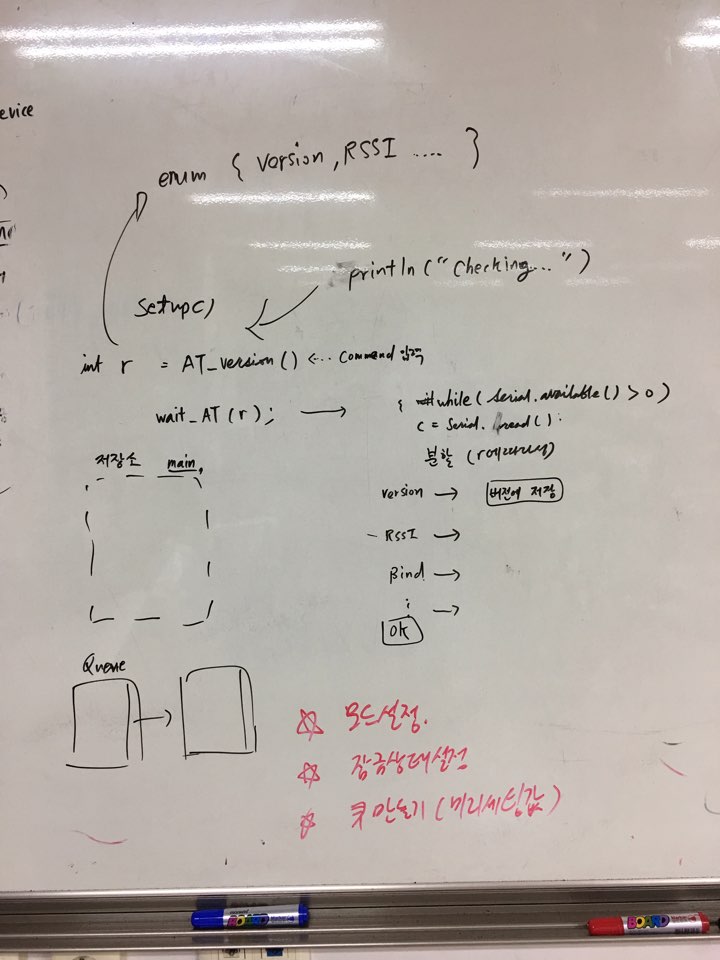 evice
enum { version, RSSI .... }
println("Checking...")
setup()
int r = AT_version() <... Command 입력
wait_AT(r); →
{ while(Serial.available() > 0)
c = Serial.read();
분할 (r에따라서)
저장소 main
version → 버전에 저장
- RSSI →
Bind →
: →
OK
Queue
☆ 모드설정.
☆ 잠금상태설정
☆ 큐 만들기 (미리세팅값)
BOARD
BOARD